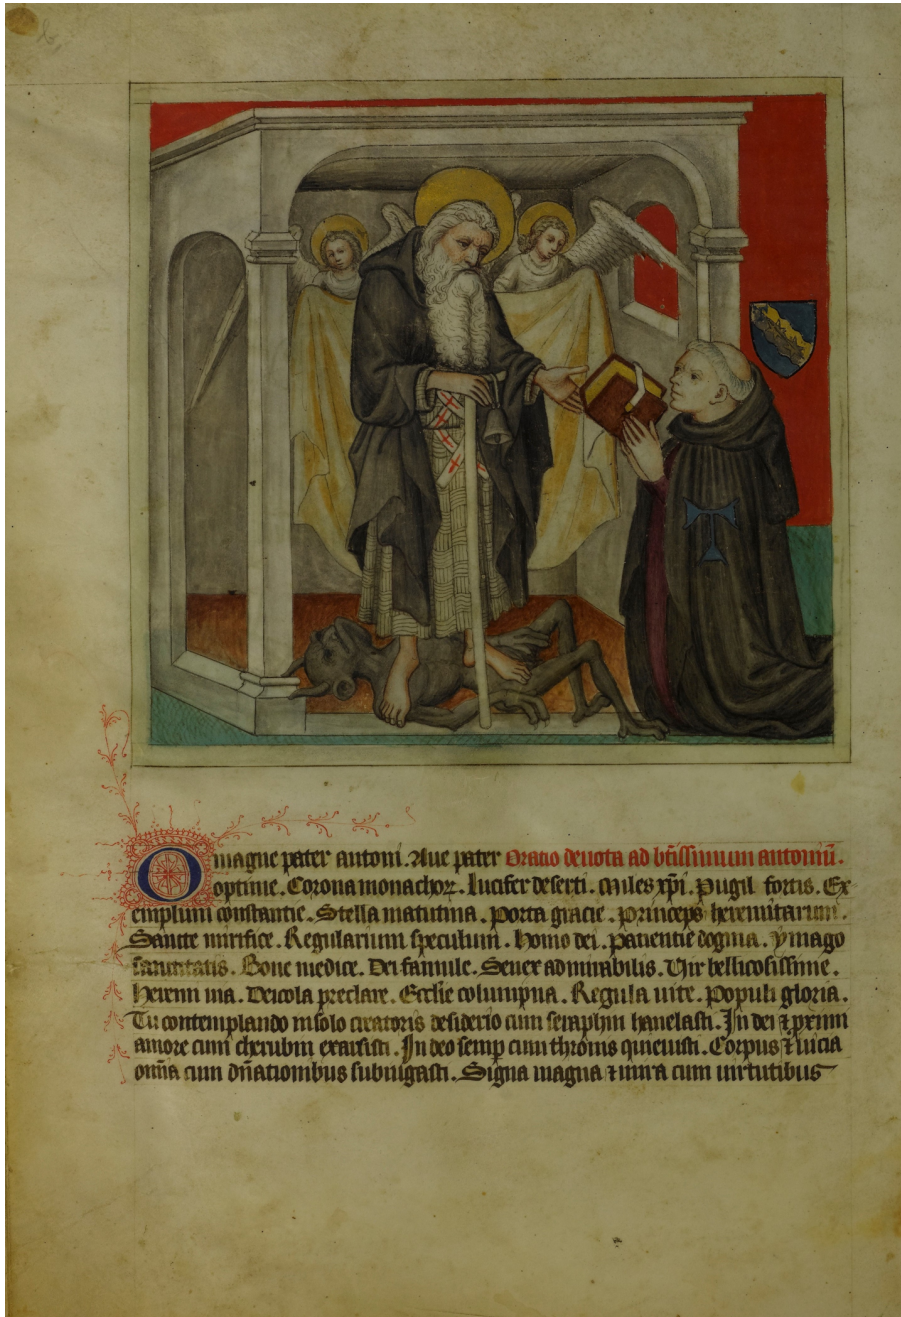 O magne pater antoni. Aue pater Oratio deuota ad btissimum antoniū.
optime. Corona monachoꝝ. lucifer deserti. Miles xp̄i. Pugil fortis. Ex
emplum constantie. Stella matutina. Porta gracie. Princeps heremitarum.
Sancte mirifice. Regularium speculum. Homo dei. Patientie dogma. Ymago
sanctitatis. Bone medice. Dei famule. Senex admirabilis. Vir bellicosissime.
Deicola preclare. Ecclie columpna. Regula uite. Populi gloria.
Tu contemplando in solo creatoris desiderio cum seraphin hanelasti. In dei ⁊ pximi
amore cum cherubin exarsisti. In deo semp cum thronis quieuisti. Corpus ⁊ uicia
omīa cum dn̄ationibus subiugasti. Signa magna ⁊ mira cum uirtutibus